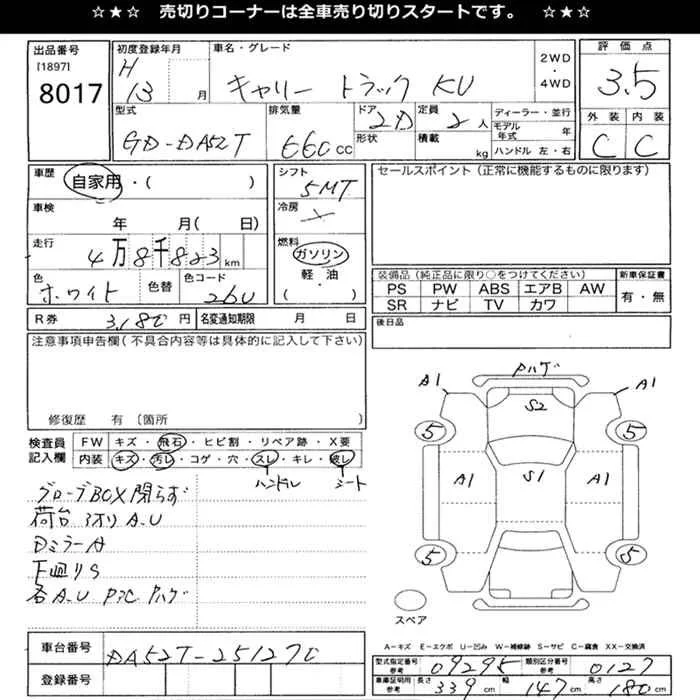 ☆★☆ 売切りコーナーは全車売り切りスタートです。 ☆★☆
出品番号 初度登録年月 車名・グレード 2WD・4WD 評価点
[1897] 8017 H 13 月 キャリー トラック KU 3.5
型式 排気量 ドア 形状 定員 積載 ディーラー・並行 外装 内装
GD-DA52T 660 CC 2D 2人 kg モデル年式 年 ハンドル 左・右 C C
車歴 自家用・( ) シフト 5MT セールスポイント (正常に機能するものに限ります)
車検 年 月( 日) 冷房 ×
走行 4万8千823 km 燃料 ガソリン 軽・油 ・( )
色 ホワイト 色替 色コード 26U
装備品 (純正品に限り○をつけてください) 新車保証書
PS PW ABS エアB AW 有・無
SR ナビ TV カワ
R券 3,180円 名変通知期限 月 日 後日品
注意事項申告欄(不具合内容等は具体的に記入して下さい)
修復歴 有 〔箇所 〕
検査員記入欄
FW キズ・飛石・ヒビ割・リペア跡・X要
内装 キズ・汚レ・コゲ・穴・スレ・キレ・破レ
ハンドル シート
グローブBOX開らず
荷台アオリ A.U
DミラーA
下廻りS
各A.U P:C Pハゲ
Pハゲ
A1 A1
S2
5 5
A1 S1 A1
5 5
スペア
A-キズ E-エクボ U-凹み W-補修跡 S-サビ C-腐食 XX-交換済
車台番号 DA52T-251270
登録番号
型式指定番号 参考 09295 類別区分番号 参考 0127
車庫証明用 参考 長さ 339 cm 幅 147 cm 高さ 180 cm